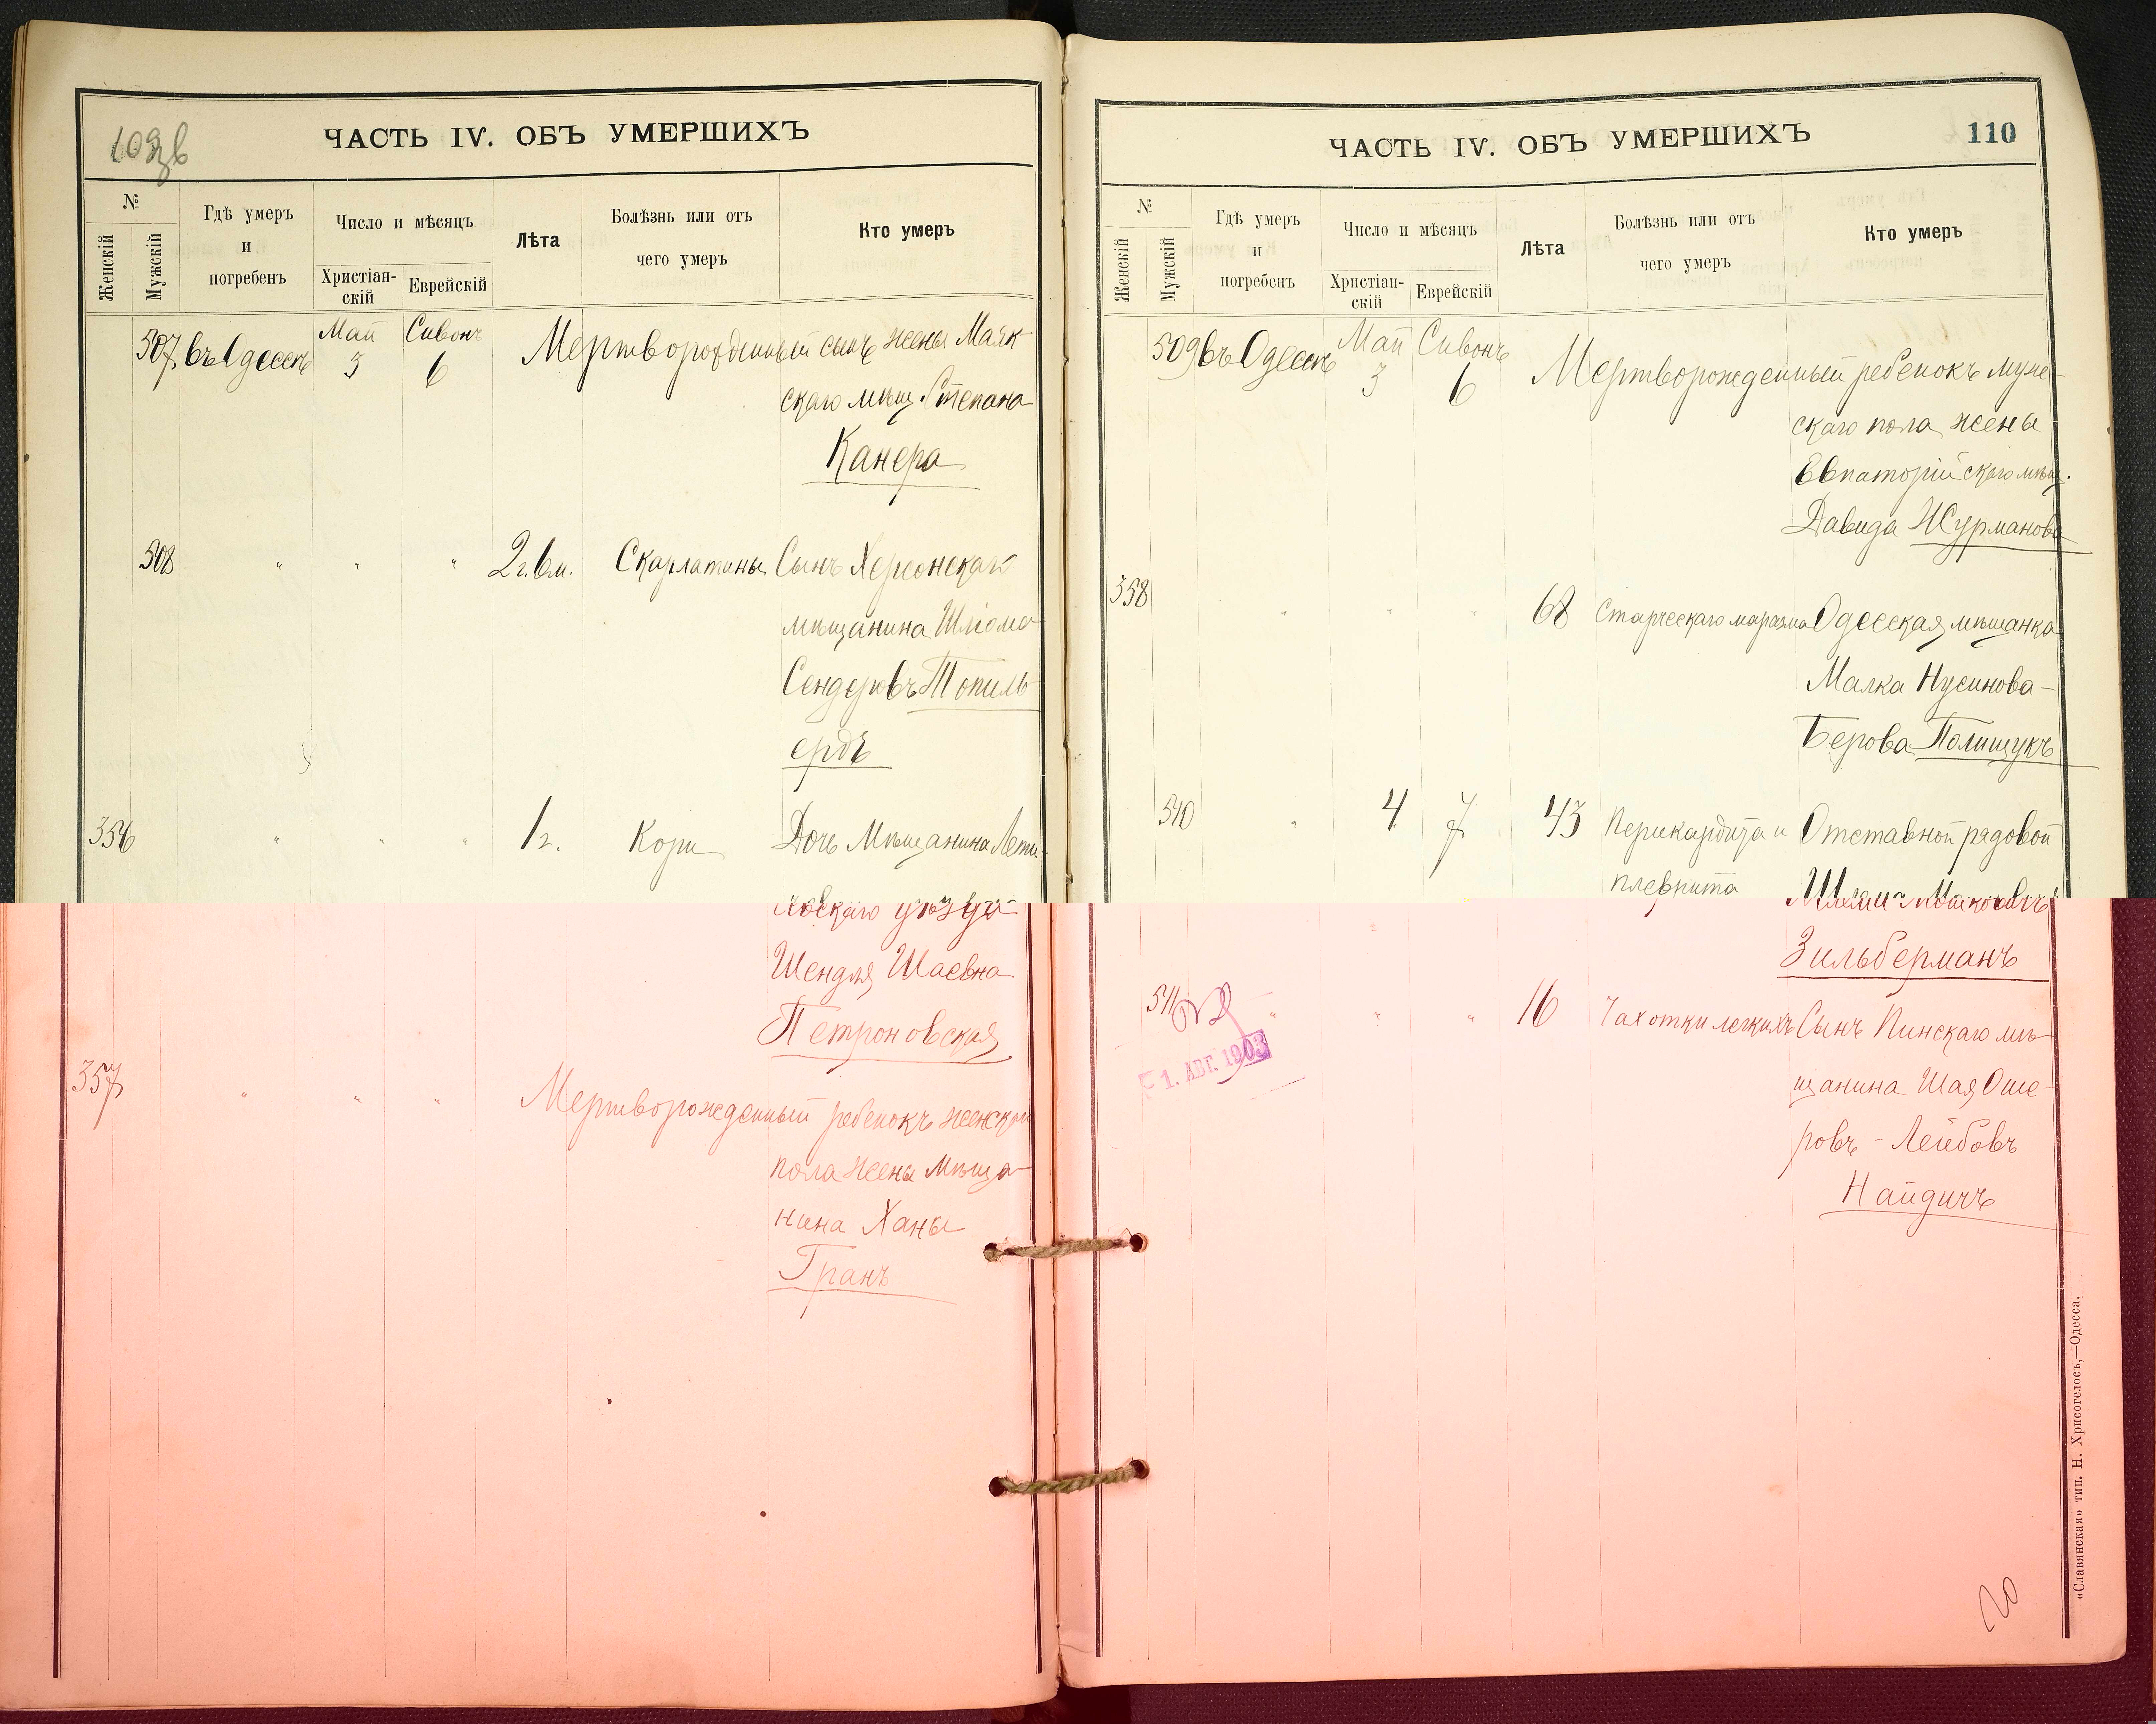 109 зв
ЧАСТЬ IV. ОБЪ УМЕРШИХЪ
№
Женскій
Мужскій
Гдѣ умеръ
и
погребенъ
Число и мѣсяцъ
Христіан-
скій
Еврейскій
Лѣта
Болѣзнь или отъ
чего умеръ
Кто умеръ
507 въ Одессѣ Май 3 Сивонъ 6 Мертворожденный сынъ жены Маяк-
скаго мѣщ. Степана
Канера
508 " " " 2 г. 6 м. Скарлатины Сынъ Херсонскаго
мѣщанина Шліома
Сендеровъ Топиль-
ердъ
356 " " " 1 г. Кори Дочь Мѣщанина Лети-
чевскаго уѣзда
Шендля Шаевна
Петроновская
357 " " " Мертворожденный ребенокъ женскаго
пола жены Мѣща-
нина Ханы
Гранъ
ЧАСТЬ IV. ОБЪ УМЕРШИХЪ
110
№
Женскій
Мужскій
Гдѣ умеръ
и
погребенъ
Число и мѣсяцъ
Христіан-
скій
Еврейскій
Лѣта
Болѣзнь или отъ
чего умеръ
Кто умеръ
509 въ Одессѣ Май 3 Сивонъ 6 Мертворожденный ребенокъ муже-
скаго пола жены
Евпаторійскаго мѣщ.
Давида Журманова
358 " " " 68 Старческаго маразма Одесская мѣщанка
Малка Нусинова-
Берова Полищукъ
510 " 4 7 43 Перикардита и Отставной рядовой
плеврита Мошковичъ
Зильберманъ
511 " " " 16 Чахотки легкихъ Сынъ Пинскаго мѣ-
щанина Шая Оше-
ровъ-Лейбовъ
Найдичъ
1. АВГ. 1903
«Славянская» тип. Н. Хрисогелосъ,—Одесса.